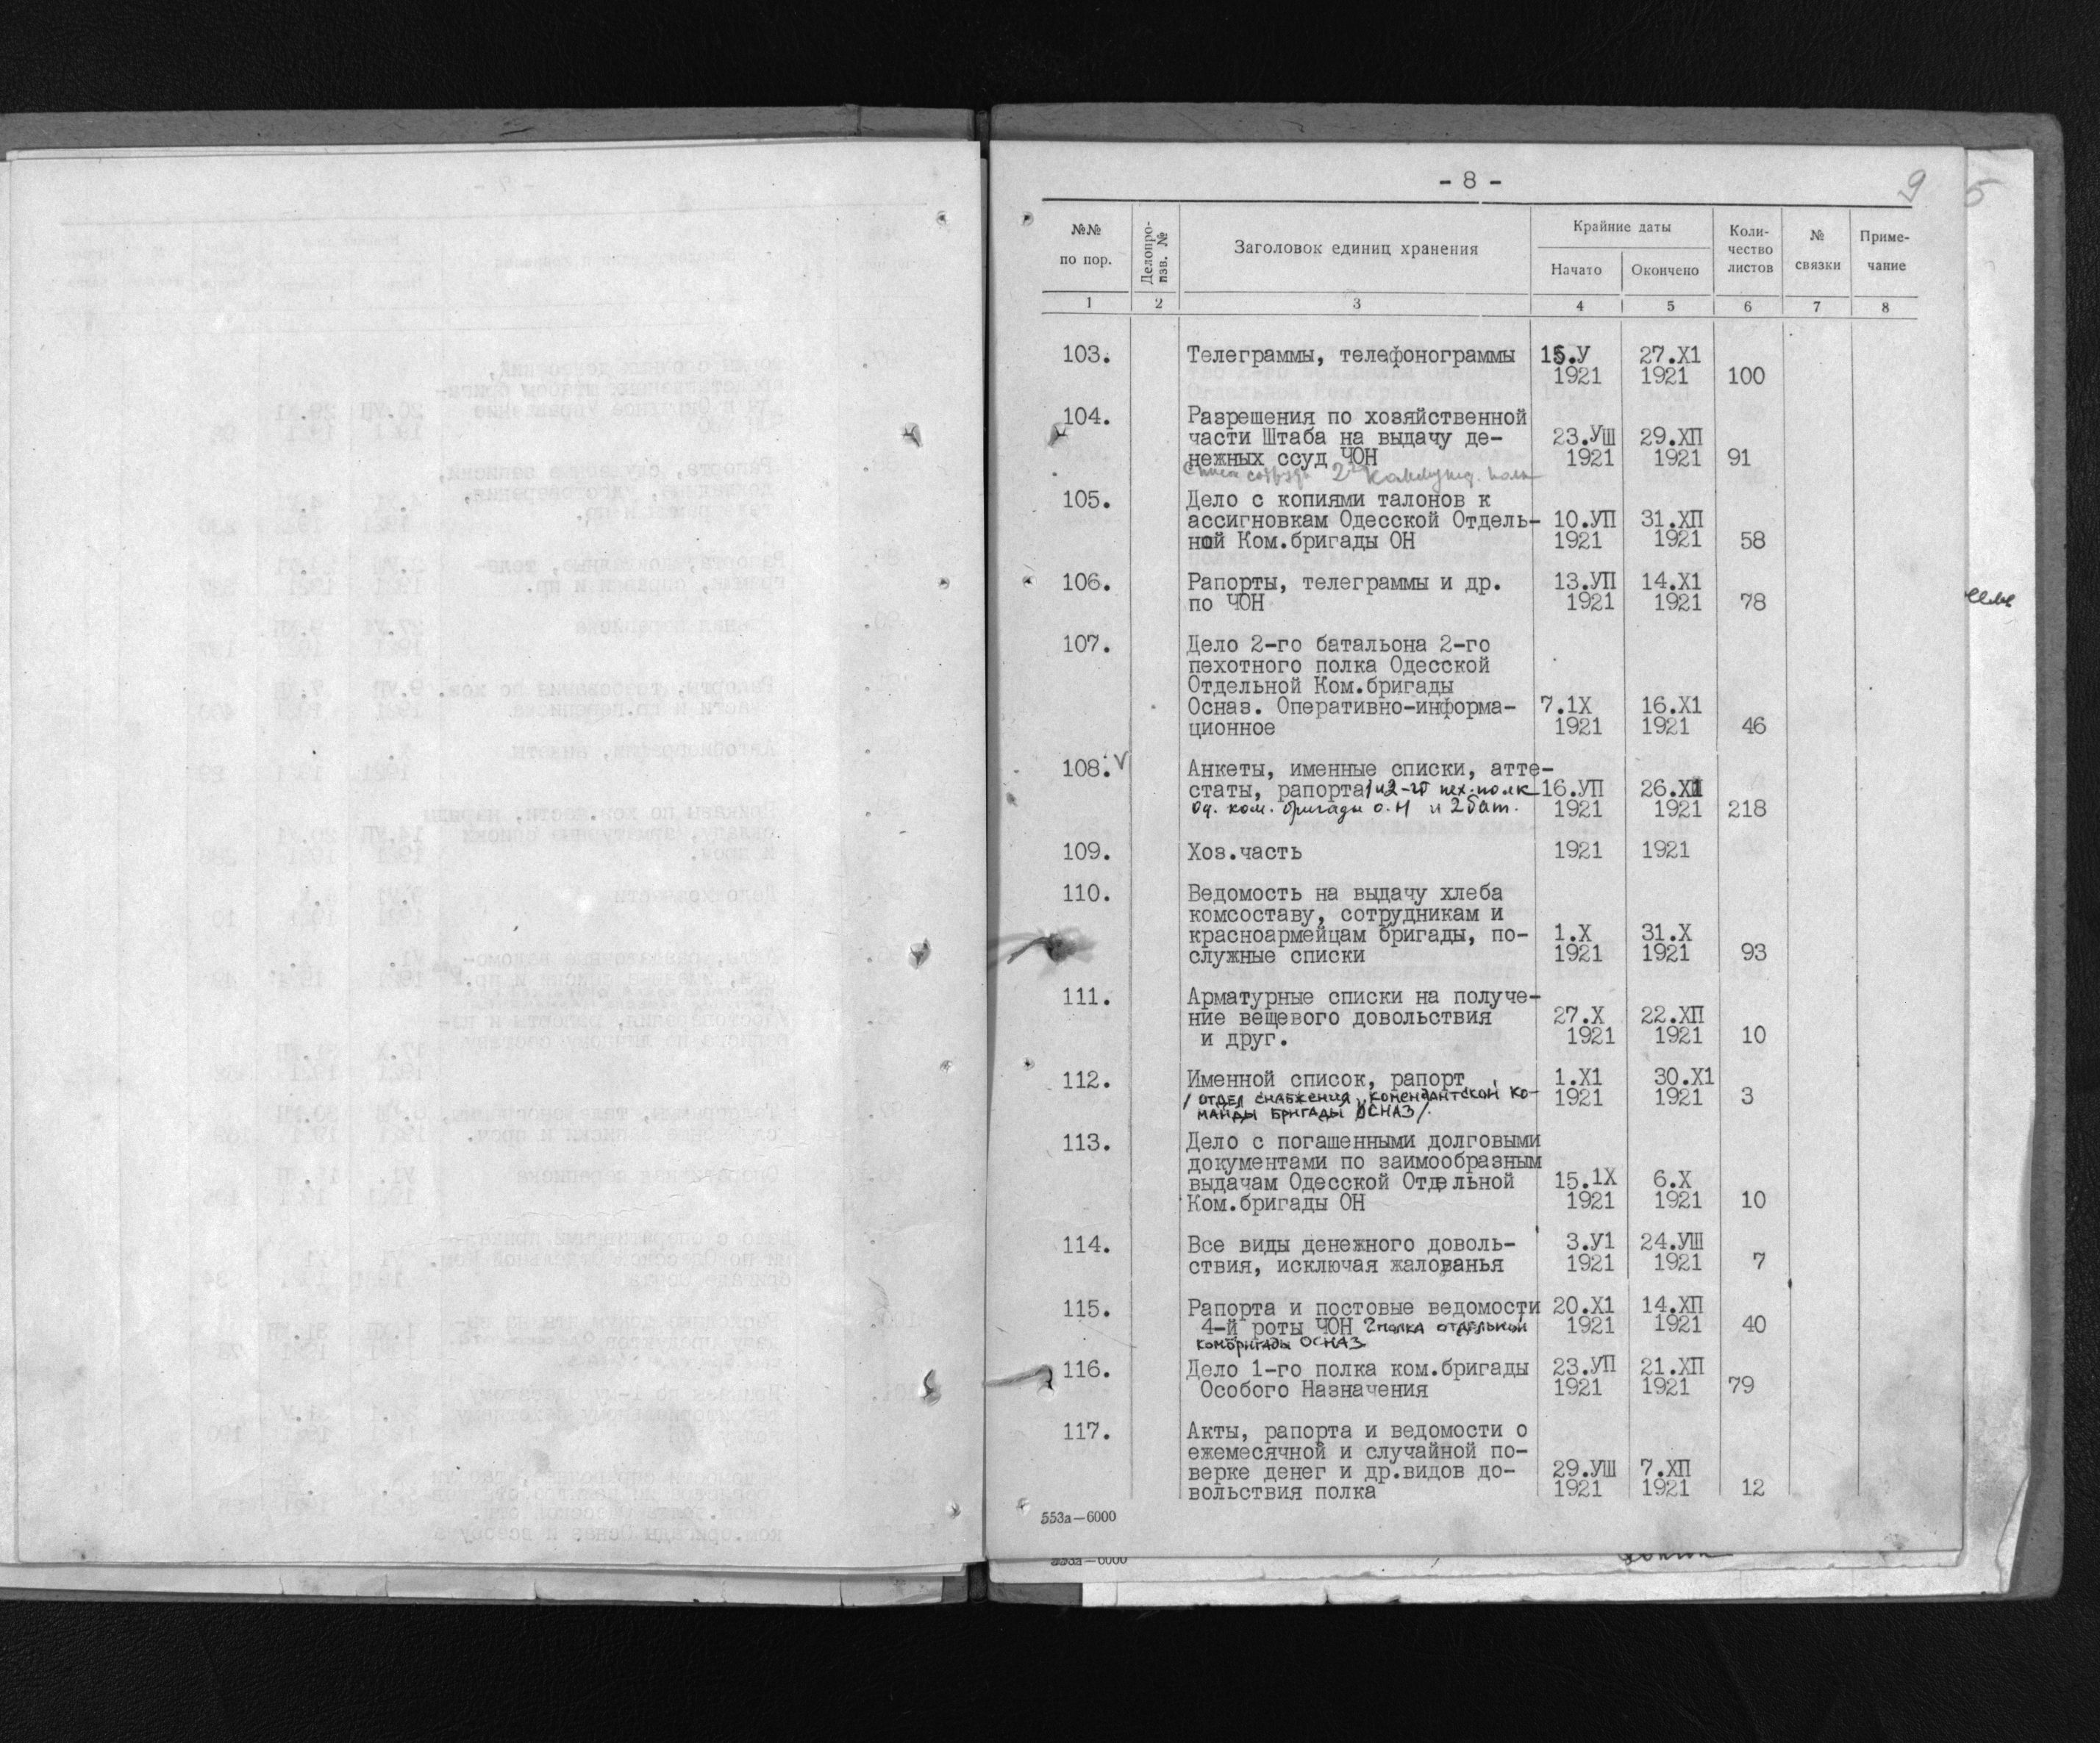 - 8 -
9 5
№№ по пор. Делопро- изв. № Заголовок единиц хранения Крайние даты Начато Окончено Коли- чество листов № связки Приме- чание
1 2 3 4 5 6 7 8
103. Телеграммы, телефонограммы 15.У 27.Х1
1921 1921 100
104. Разрешения по хозяйственной
части Штаба на выдачу де- 23.УШ 29.ХП
нежных ссуд ЧОН 1921 1921 91
105. Дело с копиями талонов к
ассигновкам Одесской Отдель- 10.УП 31.ХП
ной Ком.бригады ОН 1921 1921 58
106. Рапорты, телеграммы и др. 13.УП 14.Х1
по ЧОН 1921 1921 78
107. Дело 2-го батальона 2-го
пехотного полка Одесской
Отдельной Ком.бригады
Осназ. Оперативно-информа- 7.1Х 16.Х1
ционное 1921 1921 46
108. V Анкеты, именные списки, атте-
статы, рапорта 1 и 2-го пех. полк 16.УП 26.Х1
Од. ком. бригады о.н и 2 бат. 1921 1921 218
109. Хоз.часть 1921 1921
110. Ведомость на выдачу хлеба
комсоставу, сотрудникам и
красноармейцам бригады, по- 1.Х 31.Х
служные списки 1921 1921 93
111. Арматурные списки на получе-
ние вещевого довольствия 27.Х 22.ХП
и друг. 1921 1921 10
112. Именной список, рапорт 1.Х1 30.Х1
/ отдел снабжения, комендантской ко- 1921 1921 3
манды бригады ОСНАЗ/.
113. Дело с погашенными долговыми
документами по заимообразным
выдачам Одесской Отдельной 15.1Х 6.Х
Ком.бригады ОН 1921 1921 10
114. Все виды денежного доволь- 3.У1 24.УШ
ствия, исключая жалованья 1921 1921 7
115. Рапорта и постовые ведомости 20.Х1 14.ХП
4-й роты ЧОН 2 полка отдельной 1921 1921 40
комбригады ОСНАЗ
116. Дело 1-го полка ком.бригады 23.УП 21.ХП
Особого Назначения 1921 1921 79
117. Акты, рапорта и ведомости о
ежемесячной и случайной по-
верке денег и др.видов до- 29.УШ 7.ХП
вольствия полка 1921 1921 12
553а—6000
553а—6000